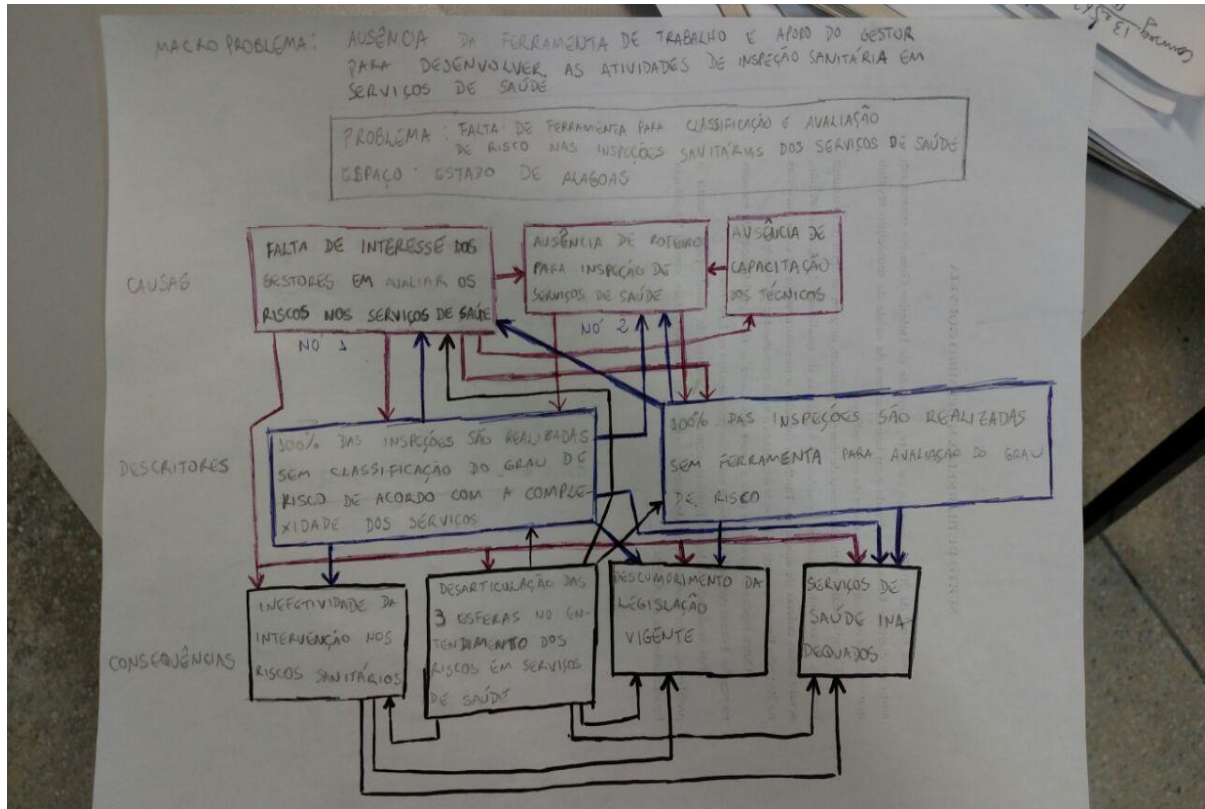 MACRO PROBLEMA: AUSÊNCIA DA FERRAMENTA DE TRABALHO E APOIO DO GESTOR
PARA DESENVOLVER AS ATIVIDADES DE INSPEÇÃO SANITÁRIA EM
SERVIÇOS DE SAÚDE
PROBLEMA: FALTA DE FERRAMENTA PARA CLASSIFICAÇÃO E AVALIAÇÃO
DE RISCO NAS INSPEÇÕES SANITÁRIAS DOS SERVIÇOS DE SAÚDE
ESPAÇO: ESTADO DE ALAGOAS
CAUSAS
FALTA DE INTERESSE DOS
GESTORES EM AVALIAR OS
RISCOS NOS SERVIÇOS DE SAÚDE
NÓ 1
AUSÊNCIA DE ROTEIRO
PARA INSPEÇÃO DE
SERVIÇOS DE SAÚDE
NÓ 2
AUSÊNCIA DE
CAPACITAÇÃO
DOS TÉCNICOS
DESCRITORES
100% DAS INSPEÇÕES SÃO REALIZADAS
SEM CLASSIFICAÇÃO DO GRAU DE
RISCO DE ACORDO COM A COMPLE-
XIDADE DOS SERVIÇOS
100% DAS INSPEÇÕES SÃO REALIZADAS
SEM FERRAMENTA PARA AVALIAÇÃO DO GRAU
DE RISCO
CONSEQUÊNCIAS
INEFETIVIDADE DA
INTERVENÇÃO NOS
RISCOS SANITÁRIOS
DESARTICULAÇÃO DAS
3 ESFERAS NO EN-
TENDIMENTO DOS
RISCOS EM SERVIÇOS
DE SAÚDE
DESCUMPRIMENTO DA
LEGISLAÇÃO
VIGENTE
SERVIÇOS DE
SAÚDE INA-
DEQUADOS